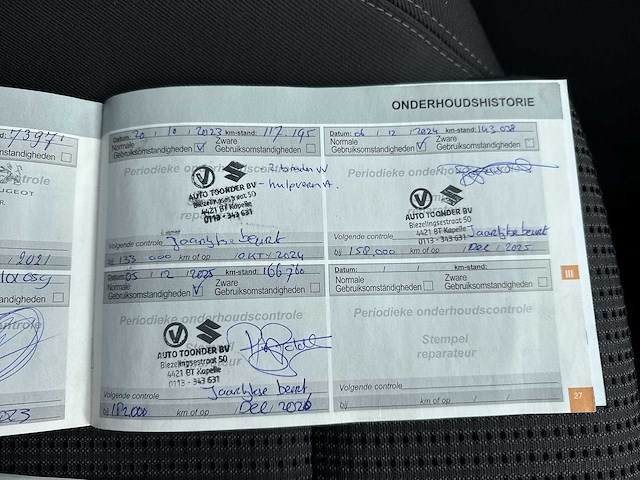 7397
nstandigheden
ntrole
UGEOT
R.
2021
standigheden
ntrole
ONDERHOUDSHISTORIE
Datum: 20 / 10 / 2023 km-stand: 117.195
Normale Zware
Gebruiksomstandigheden Gebruiksomstandigheden
Periodieke onderhoudscontrole
2 banden VV
- hulpveer VA.
AUTO TOONDER BV
Biezelingsestraat 50
4421 BT Kapelle
0113 - 343 631
Volgende controle Jaarlijkse beurt
bij 133 000 km of op / OKT / 2024
Datum: 06 / 12 / 2024 km-stand: 143 038
Normale Zware
Gebruiksomstandigheden Gebruiksomstandigheden
Periodieke onderhoudscontrole
AUTO TOONDER BV
Biezelingsestraat 50
4421 BT Kapelle
0113 - 343 631
Volgende controle Jaarlijkse beurt
bij 158,000 km of op / Dec / 2025
Datum: 05 / 12 / 2025 km-stand: 166760
Normale Zware
Gebruiksomstandigheden Gebruiksomstandigheden
Periodieke onderhoudscontrole
Stempel
reparateur
AUTO TOONDER BV
Biezelingsestraat 50
4421 BT Kapelle
0113 - 343 631
Volgende controle Jaarlijkse beurt
bij 182,000 km of op / Dec / 2026
Datum: / / km-stand:
Normale Zware
Gebruiksomstandigheden Gebruiksomstandigheden
Periodieke onderhoudscontrole
Stempel
reparateur
Volgende controle
bij km of op / /
III
27